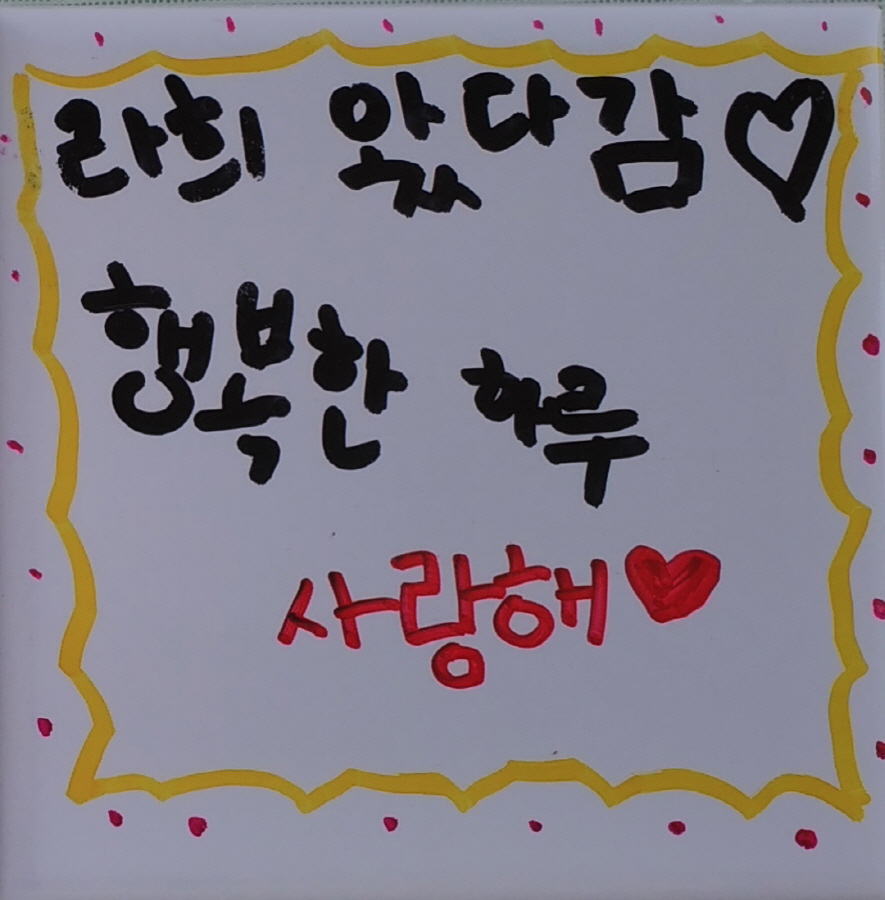 라희 왔다감♡
행복한 하루
사랑해♥